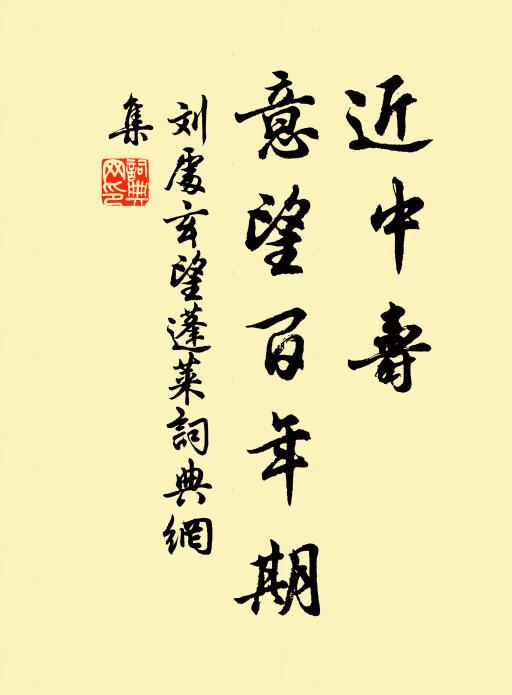 近中壽
意望百年期
刘處玄望蓬萊詞典網
集
詞典
网印